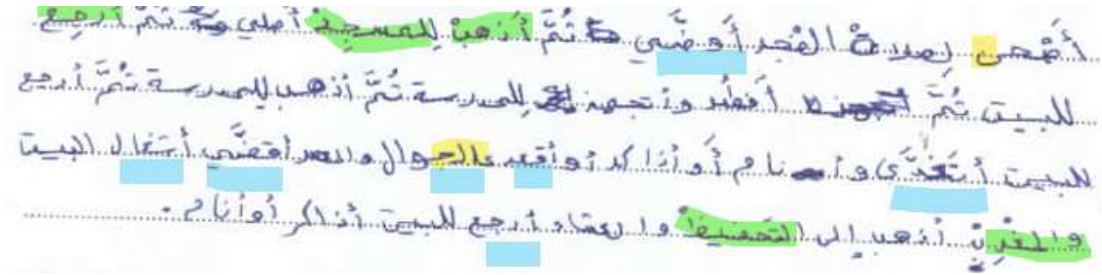 أضحى لصلاة الفجر أوضَّي ثُمَّ أذهبْ للمسجدْ أصلي ثمَّ أرجع
للبيت ثُمَّ أفطر وأتجهز للمدرسة ثمَّ أذهب للمدرسة ثُمَّ أرجع
للبيت أتغدَّى وأنام أو أذاكر أو أقعد عالجوال والعصر أقضَّي أشغال البيت
والمغربْ أذهب إلى التحفيظْ والعشاء أرجع للبيت أذاكر أو أنام.